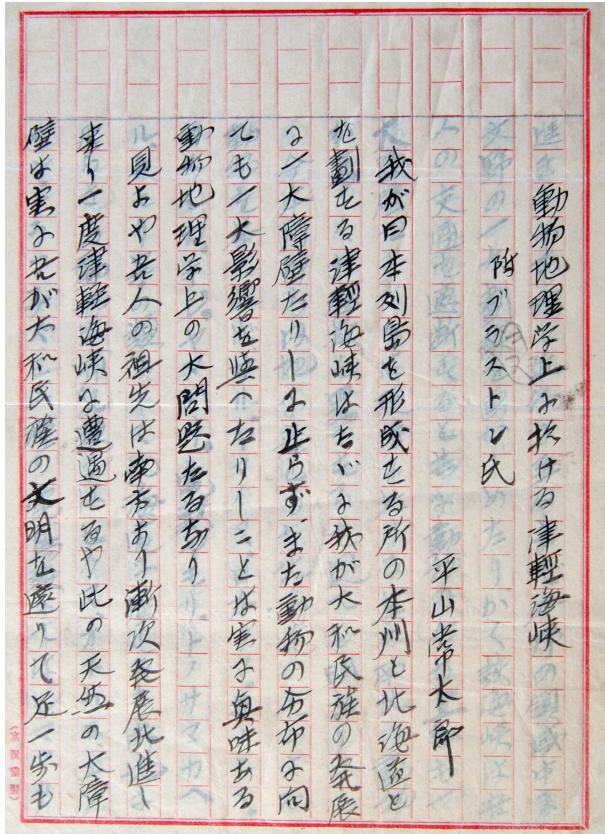 動物地理学上に於ける津軽海峡
附ブラストン氏
平山常太郎
我が日本列島を形成せる所の本州と北海道と
を劃せる津軽海峡はたゞに我が大和民族の発展
に一大障壁たりしに止らず、また動物の分布に向
ても一大影響を與へたりしことは実に興味ある
動物地理学上の大問題たるなり
見よや吾人の祖先は南方より漸次発展北進し
来り一度津軽海峡に遭遇せるや此の天然の大障
壁は実に吾が大和民族の文明を遮りて足一歩も